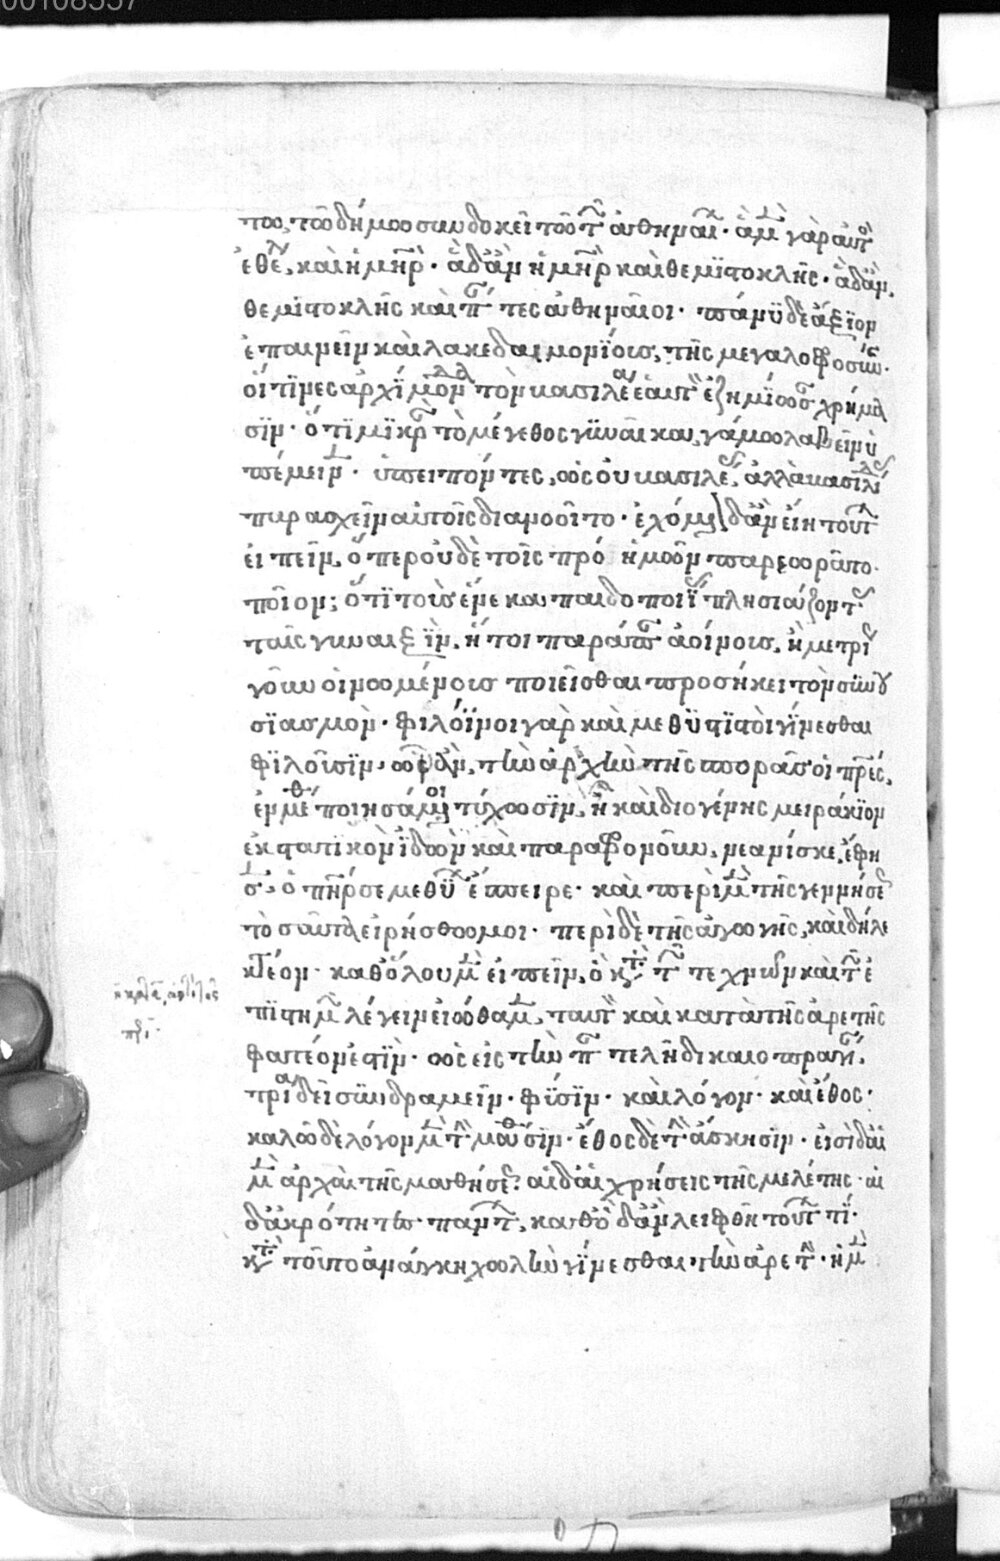 00108557
του, τοῦ δήμου συνδοκεῖ τοῦ τῶν ἀθηναίων· ἃ μὲν γὰρ αὐτὸς
ἐθέλει, καὶ ἡ μήτηρ· ἃ δ' ἂν ἡ μήτηρ καὶ θεμιστοκλῆς· ἃ δ' ἂν
θεμιστοκλῆς καὶ πάντες ἀθηναῖοι· πάνυ δὲ ἄξιον
ἐπαινεῖν καὶ λακεδαιμονίους, τῆς μεγαλοφροσύνης·
οἵτινες ἀρχίδαμον τὸν βασιλέα ἑαυτῶν ἐζημίωσαν χρήμα
σιν· ὅτι μικρὰν τὸ μέγεθος γυναῖκα, γάμου λαβεῖν ὑ
πέμεινεν· ὑπειπόντες, ὡς οὐ βασιλέας, ἀλλὰ βασιλί
παρασχεῖν αὐτοῖς διανοοῖτο· ἐχόμενον δ' ἂν εἴη τούτων
εἰπεῖν, ὅπερ οὐδὲ τοῖς πρὸ ἡμῶν παρεωρᾶτο·
ποῖον; ὅτι τοὺς ἕνεκα παιδοποιΐας πλησιάζοντας
ταῖς γυναιξὶν, ἤτοι παράπαν ἀοίνους, ἢ μετρί
γοῦν οἰνωμένους ποιεῖσθαι προσήκει τὸν συνου
σιασμόν· φίλοινοι γὰρ καὶ μεθυστικοὶ γίνεσθαι
φιλοῦσιν, ὧν ἂν, τὴν ἀρχὴν τῆς σπορᾶς οἱ πατέρες,
ἐν μέθῃ ποιησάμενοι τύχωσιν, ᾗ καὶ διογένης μειράκιον
ἐκστατικὸν ἰδὼν καὶ παραφρονοῦν, νεανίσκε, ἔφη
σεν, ὁ πατήρ σε μεθύων ἔσπειρε· καὶ περὶ μὲν τῆς γεννήσεως
τοσαῦτα εἰρήσθω μοι· περὶ δὲ τῆς ἀγωγῆς, καὶ δὴ λε
κτέον· καθόλου μὲν εἰπεῖν, ὃ κατὰ τῶν τεχνῶν καὶ τῶν ἐ
πιστημῶν λέγειν εἰώθαμεν, ταυτὸν καὶ κατὰ τῆς ἀρετῆς
φατέον ἐστὶν· ὡς εἰς τὴν παντελῆ δικαιοπραγίαν,
τρία δεῖ συνδραμεῖν· φύσιν· καὶ λόγον· καὶ ἔθος·
καλῶ δὲ λόγον μὲν τὴν μάθησιν· ἔθος δὲ τὴν ἄσκησιν· εἰσὶ δ' αἱ
μὲν ἀρχαὶ τῆς μαθήσεως· αἱ δὲ χρήσεις τῆς μελέτης· αἱ
δ' ἀκρότητες πάντων, καθὸ δ' ἂν λειφθῇ τούτων τι·
κατὰ τοῦτο ἀνάγκη χωλὴν γίνεσθαι τὴν ἀρετὴν· ἡ μὲν